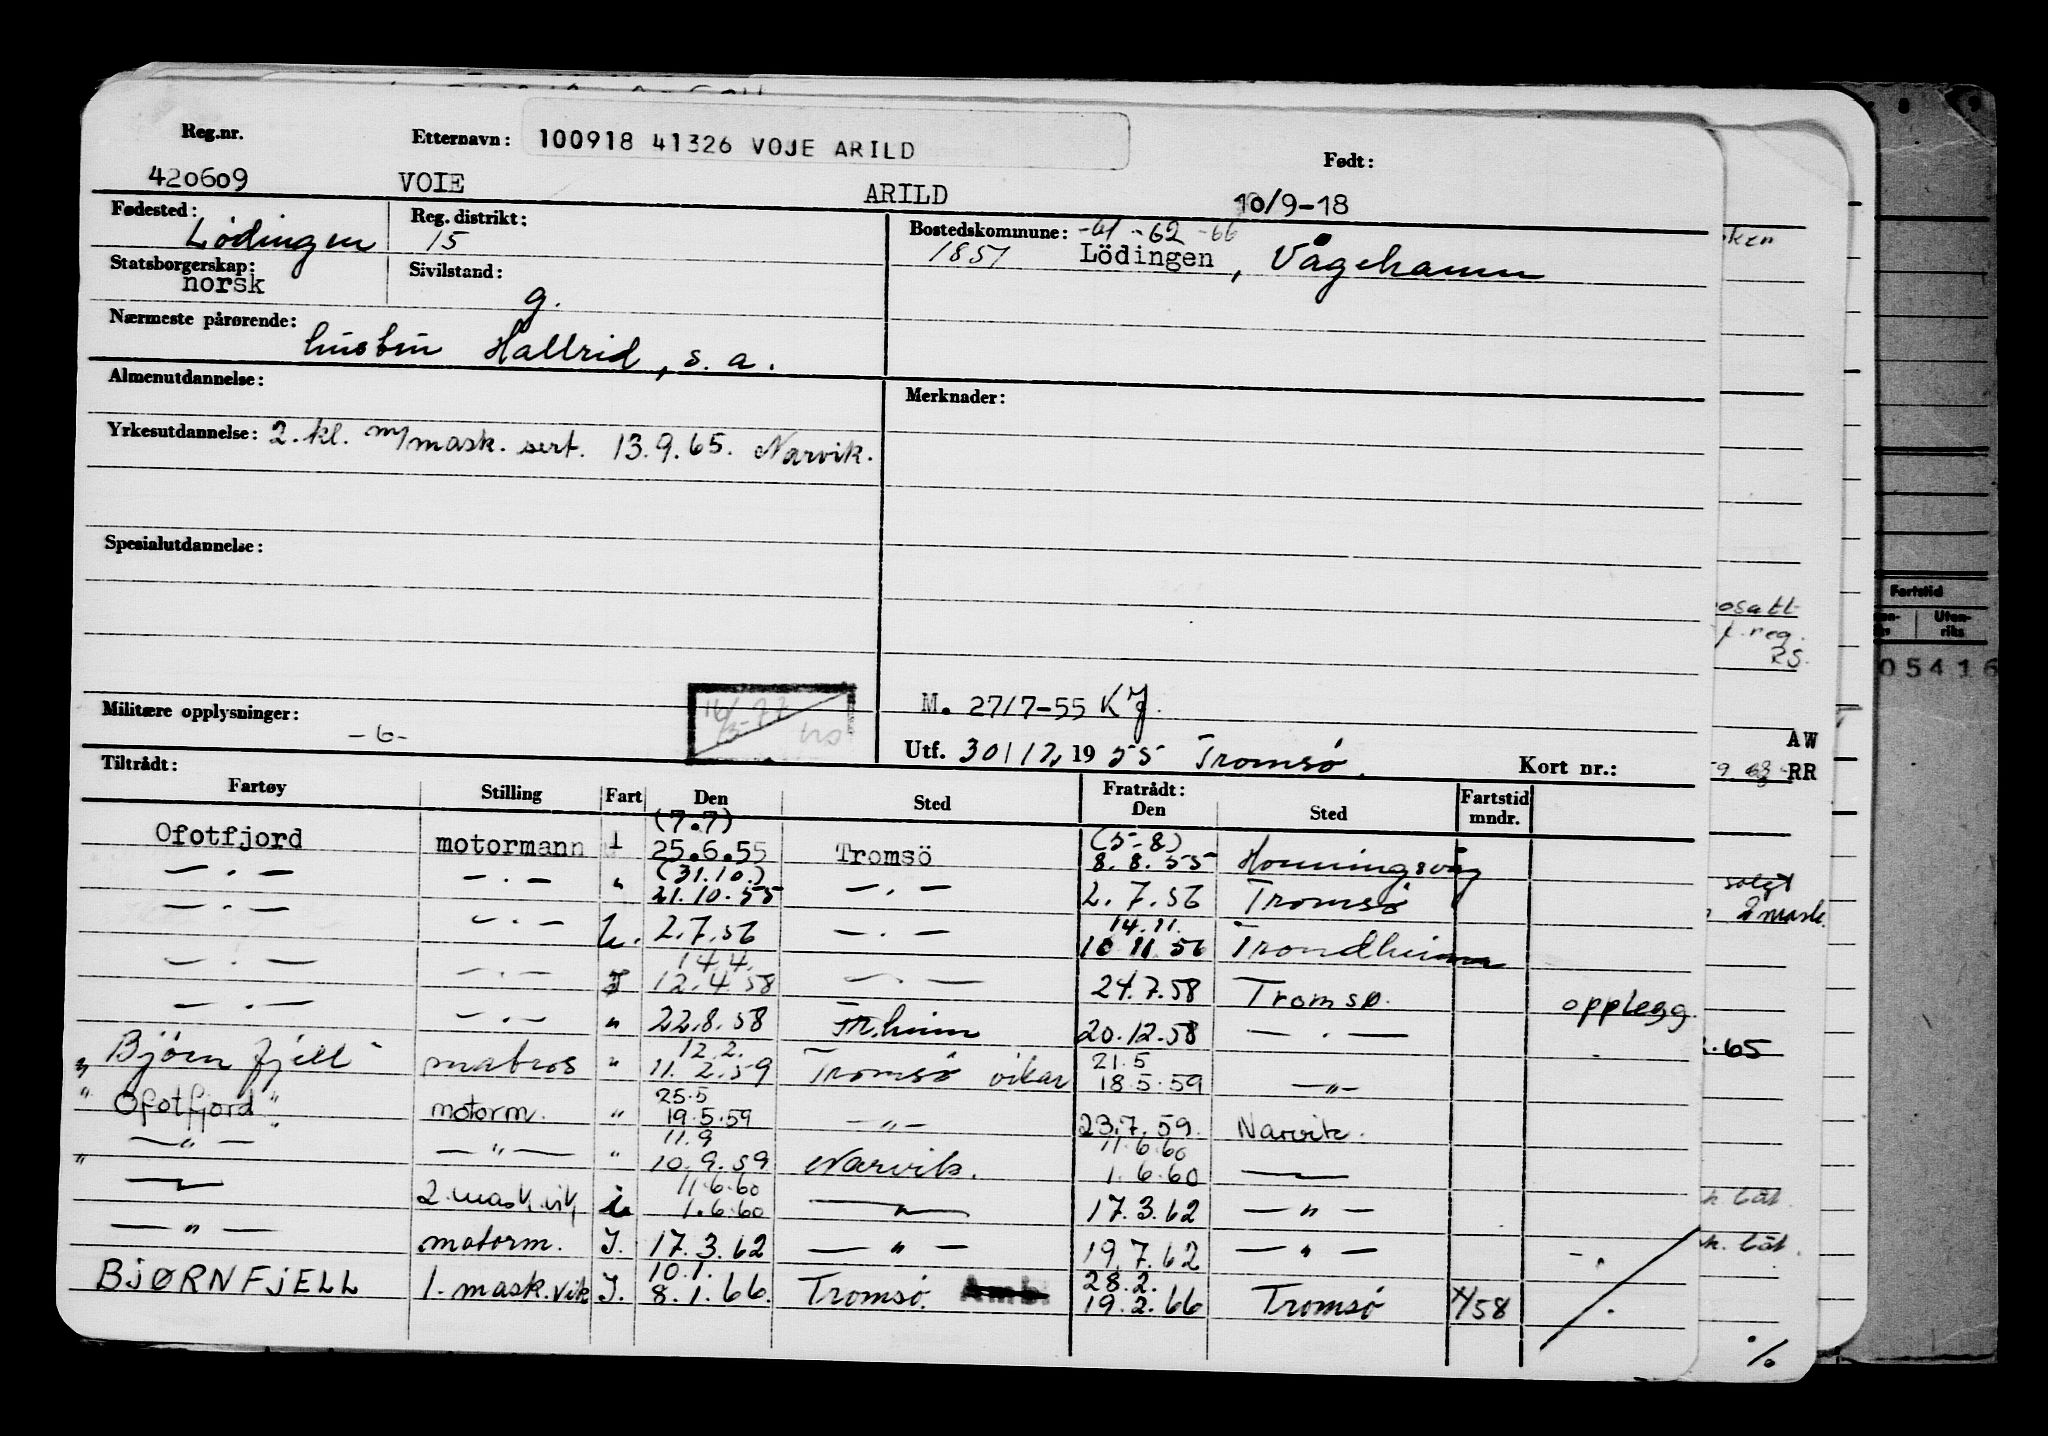 Reg.nr. Etternavn: 100918 41326 VOJE ARILD Født:
420609 VOIE ARILD 10/9-18
Fødested: Lødingen Reg. distrikt: 15 Bostedskommune: -61 -62 -66
1851 Lödingen, Vågehamn
Statsborgerskap: norsk Sivilstand: g.
Nærmeste pårørende: hustru Hallrid, s. a.
Almenutdannelse: Merknader:
Yrkesutdannelse: 2. kl. m/mask. sert. 13.9.65. Narvik.
Spesialutdannelse:
Militære opplysninger: -6- M. 27/7-55 KJ.
Utf. 30/12, 1955 Tromsø. Kort nr.:
Tiltrådt: Fratrådt:
Fartøy Stilling Fart Den Sted Den Sted Fartstid mndr.
(7.7) (5-8)
Ofotfjord motormann 25.6.55 Tromsö 8.8.55 Honningsvåg
(31.10.)
— . — — . — " 21.10.55 — . — 2.7.56 Tromsø
14.11.
— . — — . — 2.7.56 — . — 10 11 56 Trondheim
14.4.
— . — — . — 12.4.58 — . — 24.7.58 Tromsø. opplegg.
— . — — . — " 22.8.58 Tr.heim 20.12.58 — . —
12.2. 21.5
Björnfjell matros " 11.2.59 Tromsø vikar 18.5.59 — " —
25.5
" Ofotfjord " motorm. " 19.5.59 — " — 23.7.59. Narvik.
11.9 11.6.60
— " — — " — " 10.9.59 Narvik. 1.6.60 —
11.6.60
" — 2. mask.vik i. 1.6.60 — " — 17.3.62 — " —
— " — motorm. I. 17.3.62 — " — 19.7.62 — " —
10.1. 28.2.
BJØRNFJELL 1. mask.vik I. 8.1.66. Tromsø. 19.2.66 Tromsø x/58
Fartstid
Uten-
riks
05416
AW
RR
solgt
2 mask.
RS.
.65
%